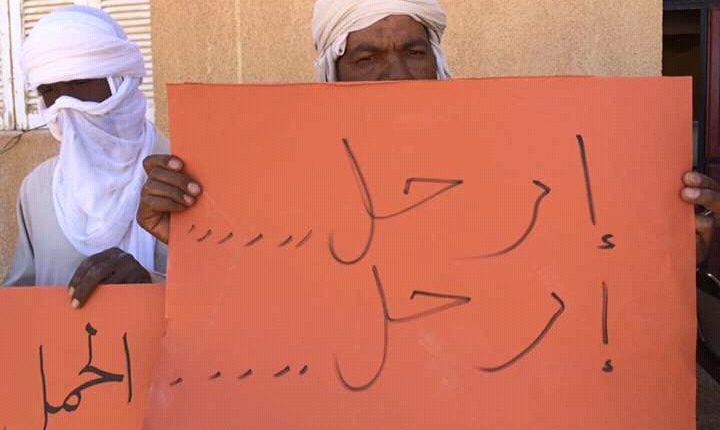 إرحل ,,,,,,
إرحل ......
الحمل